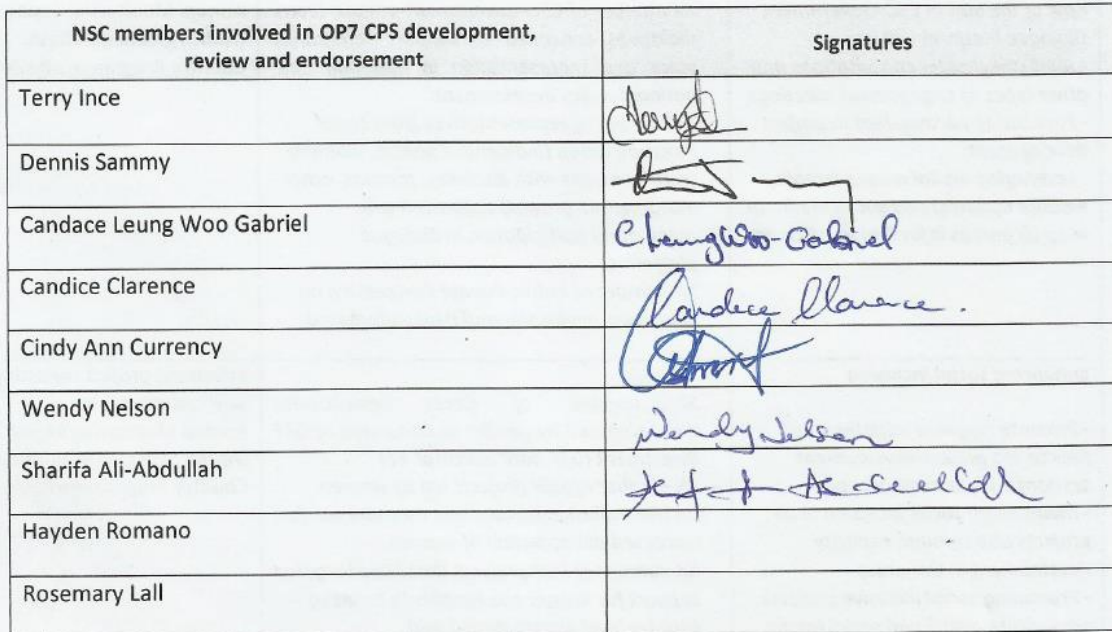 NSC members involved in OP7 CPS development,
review and endorsement
Signatures
Terry Ince
Dennis Sammy
Candace Leung Woo Gabriel
CLeungWoo-Gabriel
Candice Clarence
Candice Clarence.
Cindy Ann Currency
Wendy Nelson
Wendy Nelson
Sharifa Ali-Abdullah
Hayden Romano
Rosemary Lall